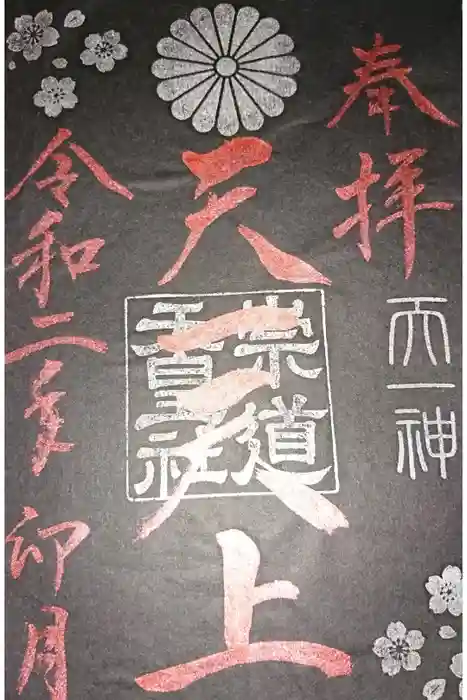 奉拝
天一神
天一天上
崇道
天皇社
令和二年 卯月